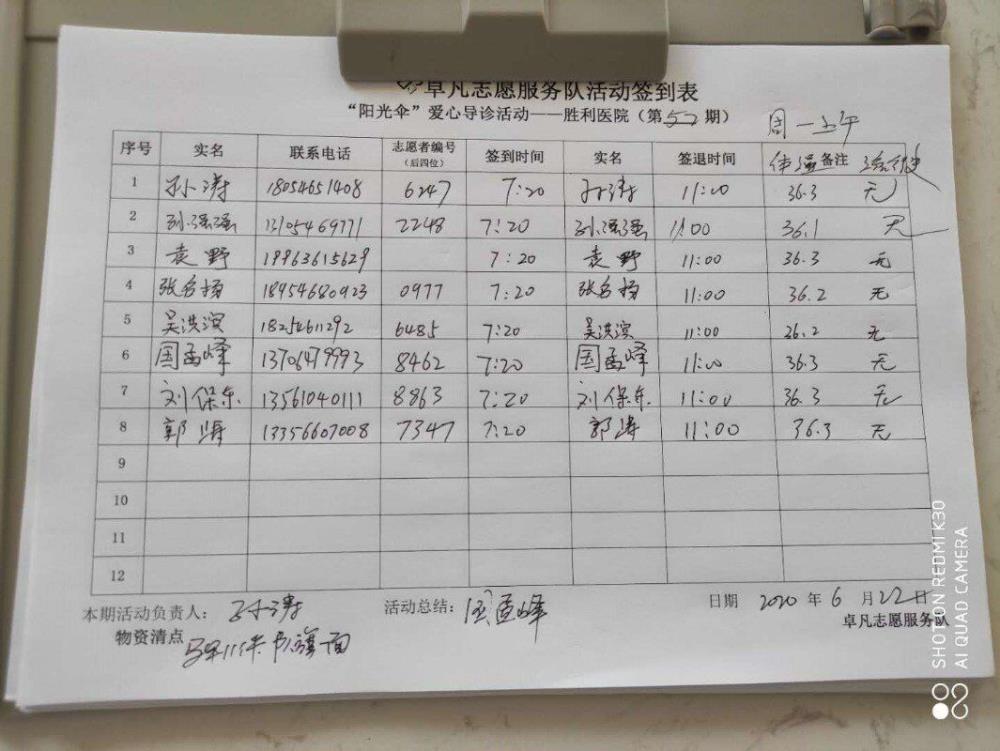 卓凡志愿服务队活动签到表
“阳光伞”爱心导诊活动——胜利医院（第52期）
周一上午
序号 实名 联系电话 志愿者编号（后四位） 签到时间 实名 签退时间 体温 备注
1 孙涛 18054651408 6247 7:20 孙涛 11:00 36.3 无
2 孙强强 13105469771 2248 7:20 孙强强 11:00 36.1 无
3 袁野 18963615629 7:20 袁野 11:00 36.3 无
4 张名扬 18954680923 0977 7:20 张名扬 11:00 36.2 无
5 吴洪滨 18254611292 6485 7:20 吴洪滨 11:00 26.2 无
6 国孟峰 13706479993 8462 7:20 国孟峰 11:00 36.3 无
7 刘保东 13561040111 8863 7:20 刘保东 11:00 36.3 无
8 郭涛 13356607008 7347 7:20 郭涛 11:00 36.3 无
9
10
11
12
本期活动负责人：孙涛 活动总结：国孟峰 日期 2020年6月22日
物资清点 队旗一面 卓凡志愿服务队
SHOT ON REDMI K30
AI QUAD CAMERA